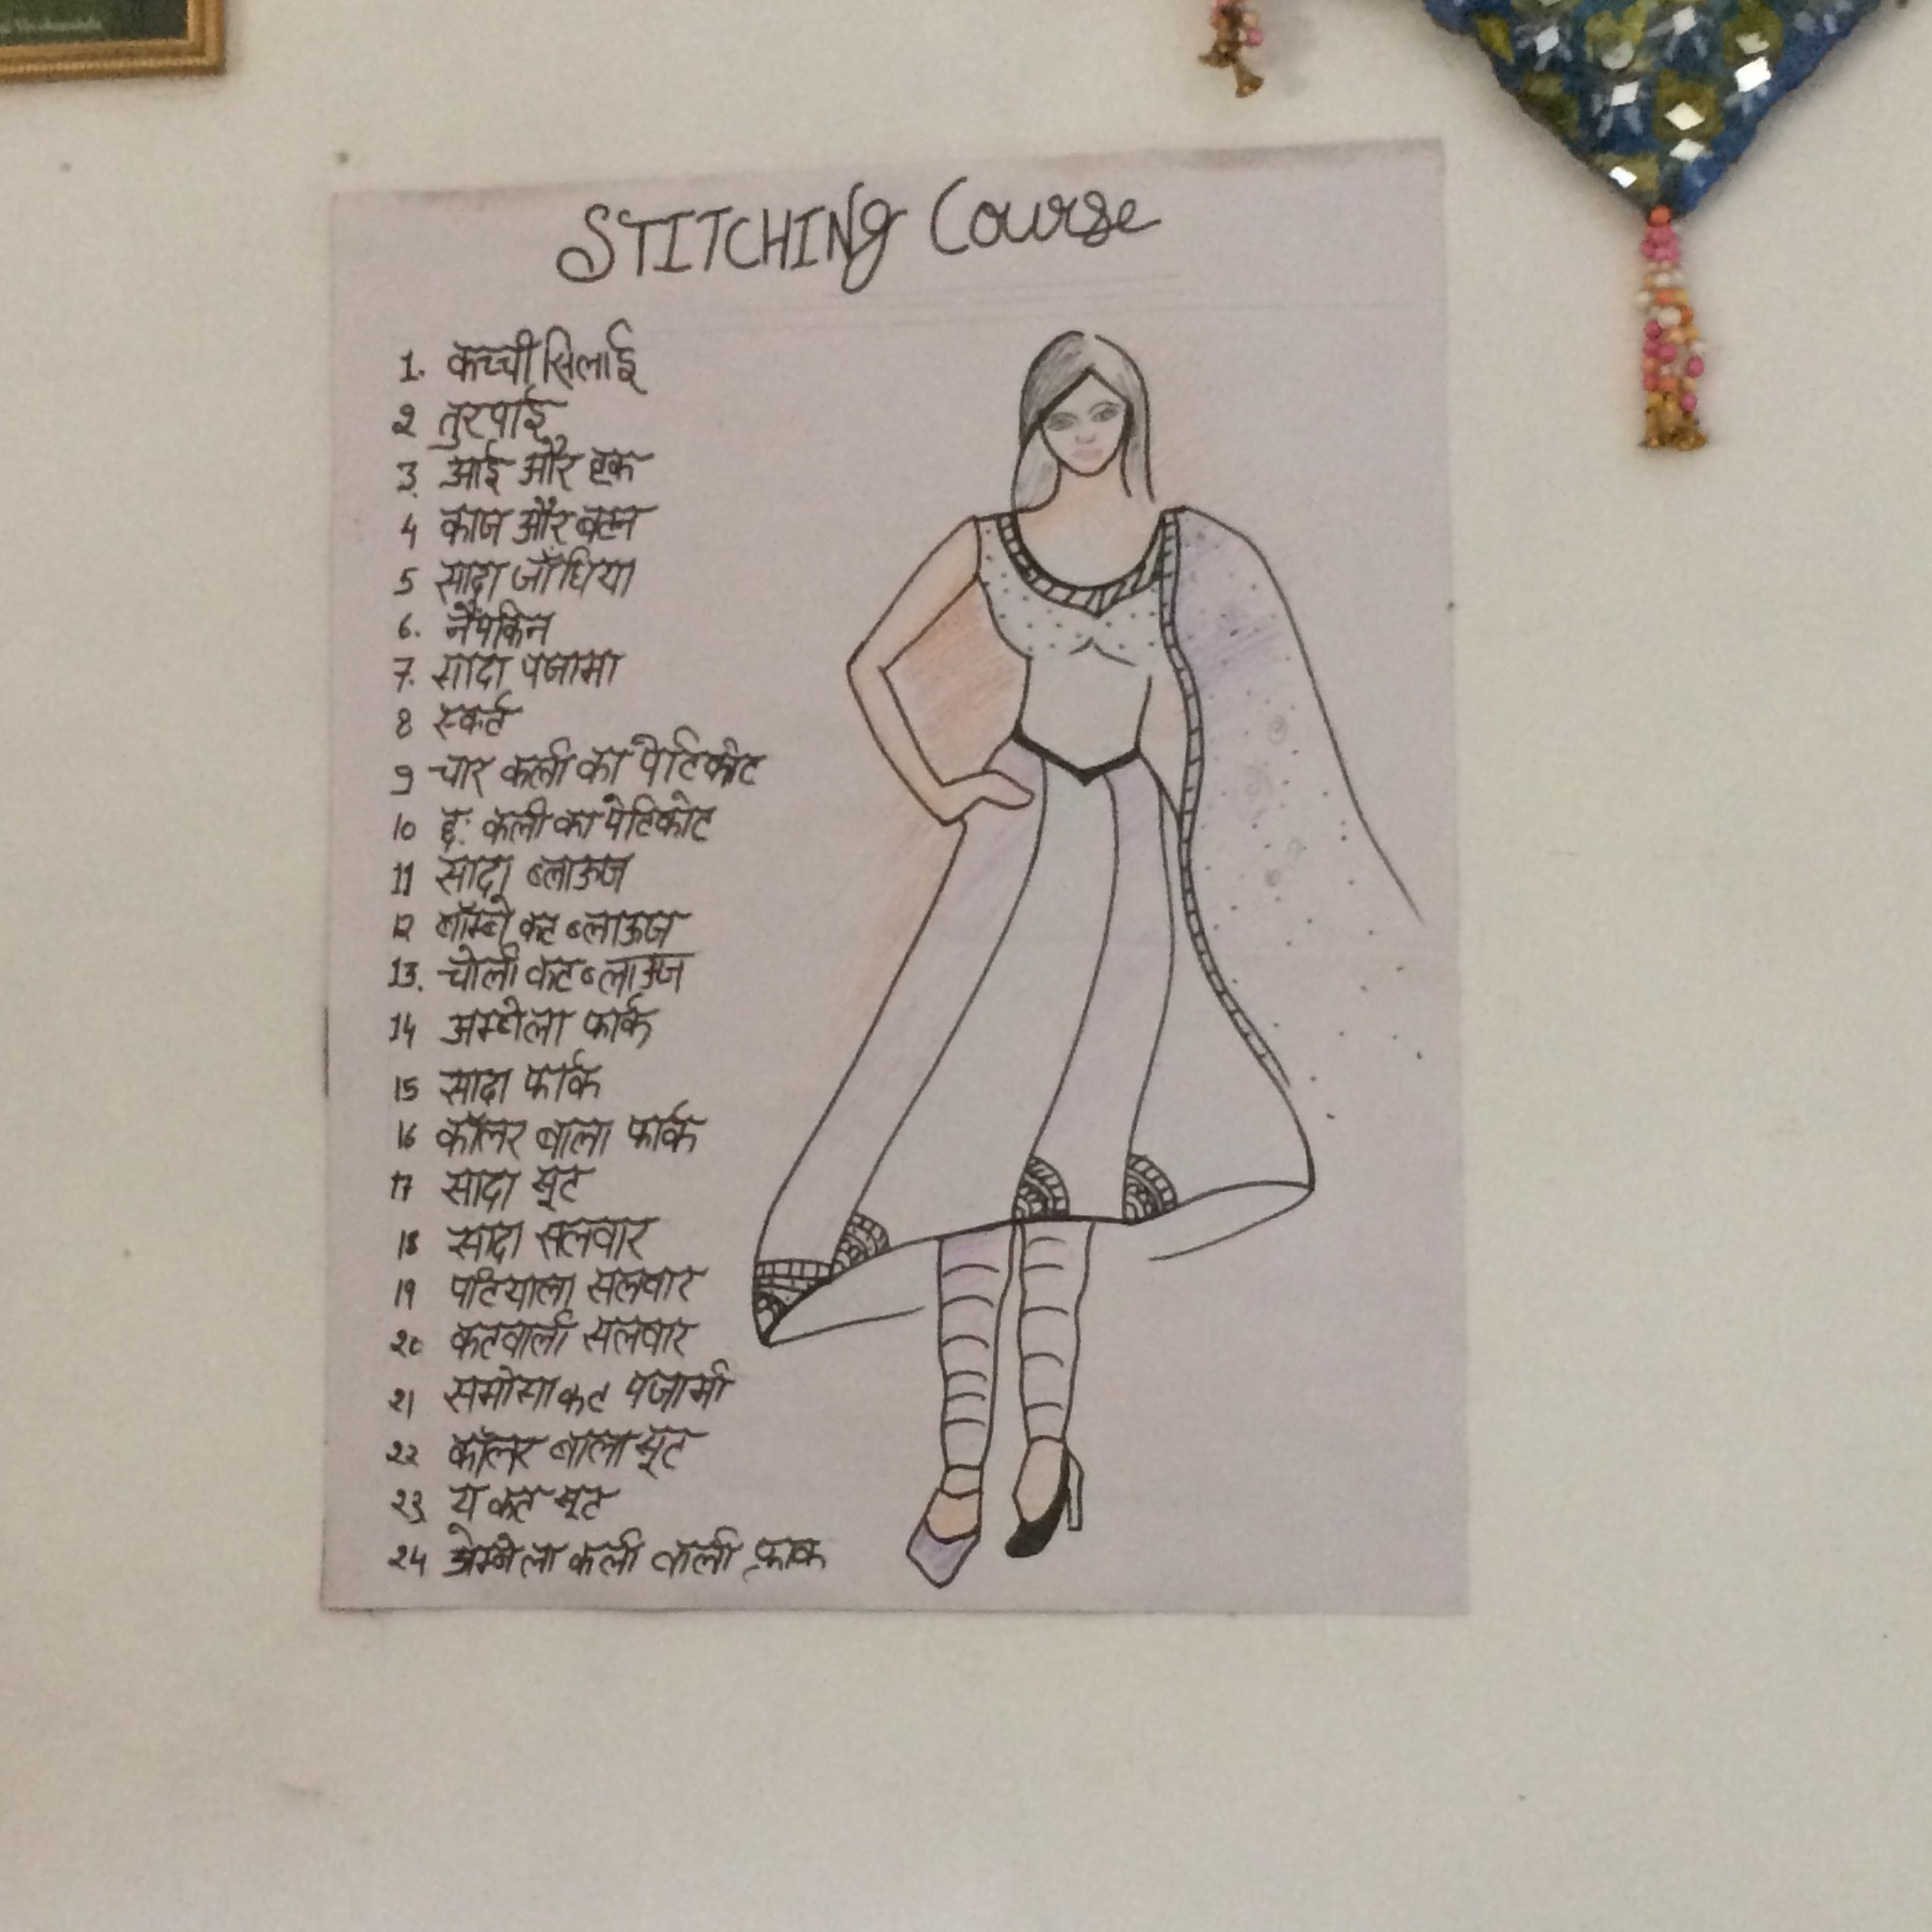 STITCHINg Course
1. कच्ची सिलाई
2 तुरपाई
3. आई और हुक
4 काज और बटन
5 सादा जाँघिया
6. नैपकिन
7. सादा पजामा
8 स्कर्ट
9 चार कली का पेटिकोट
10 छः कली का पेटिकोट
11 सादा ब्लाऊज
12 बॉम्बे कट ब्लाऊज
13. चोली कट ब्लाऊज
14 अम्ब्रेला फार्क
15 सादा फार्क
16 कॉलर वाला फार्क
17 सादा सूट
18 सादा सलवार
19 पटियाला सलवार
20 कटवाली सलवार
21 समोसा कट पजामी
22 कॉलर वाला सूट
23 ए कट सूट
24 अम्ब्रेला कली वाली फ्राक